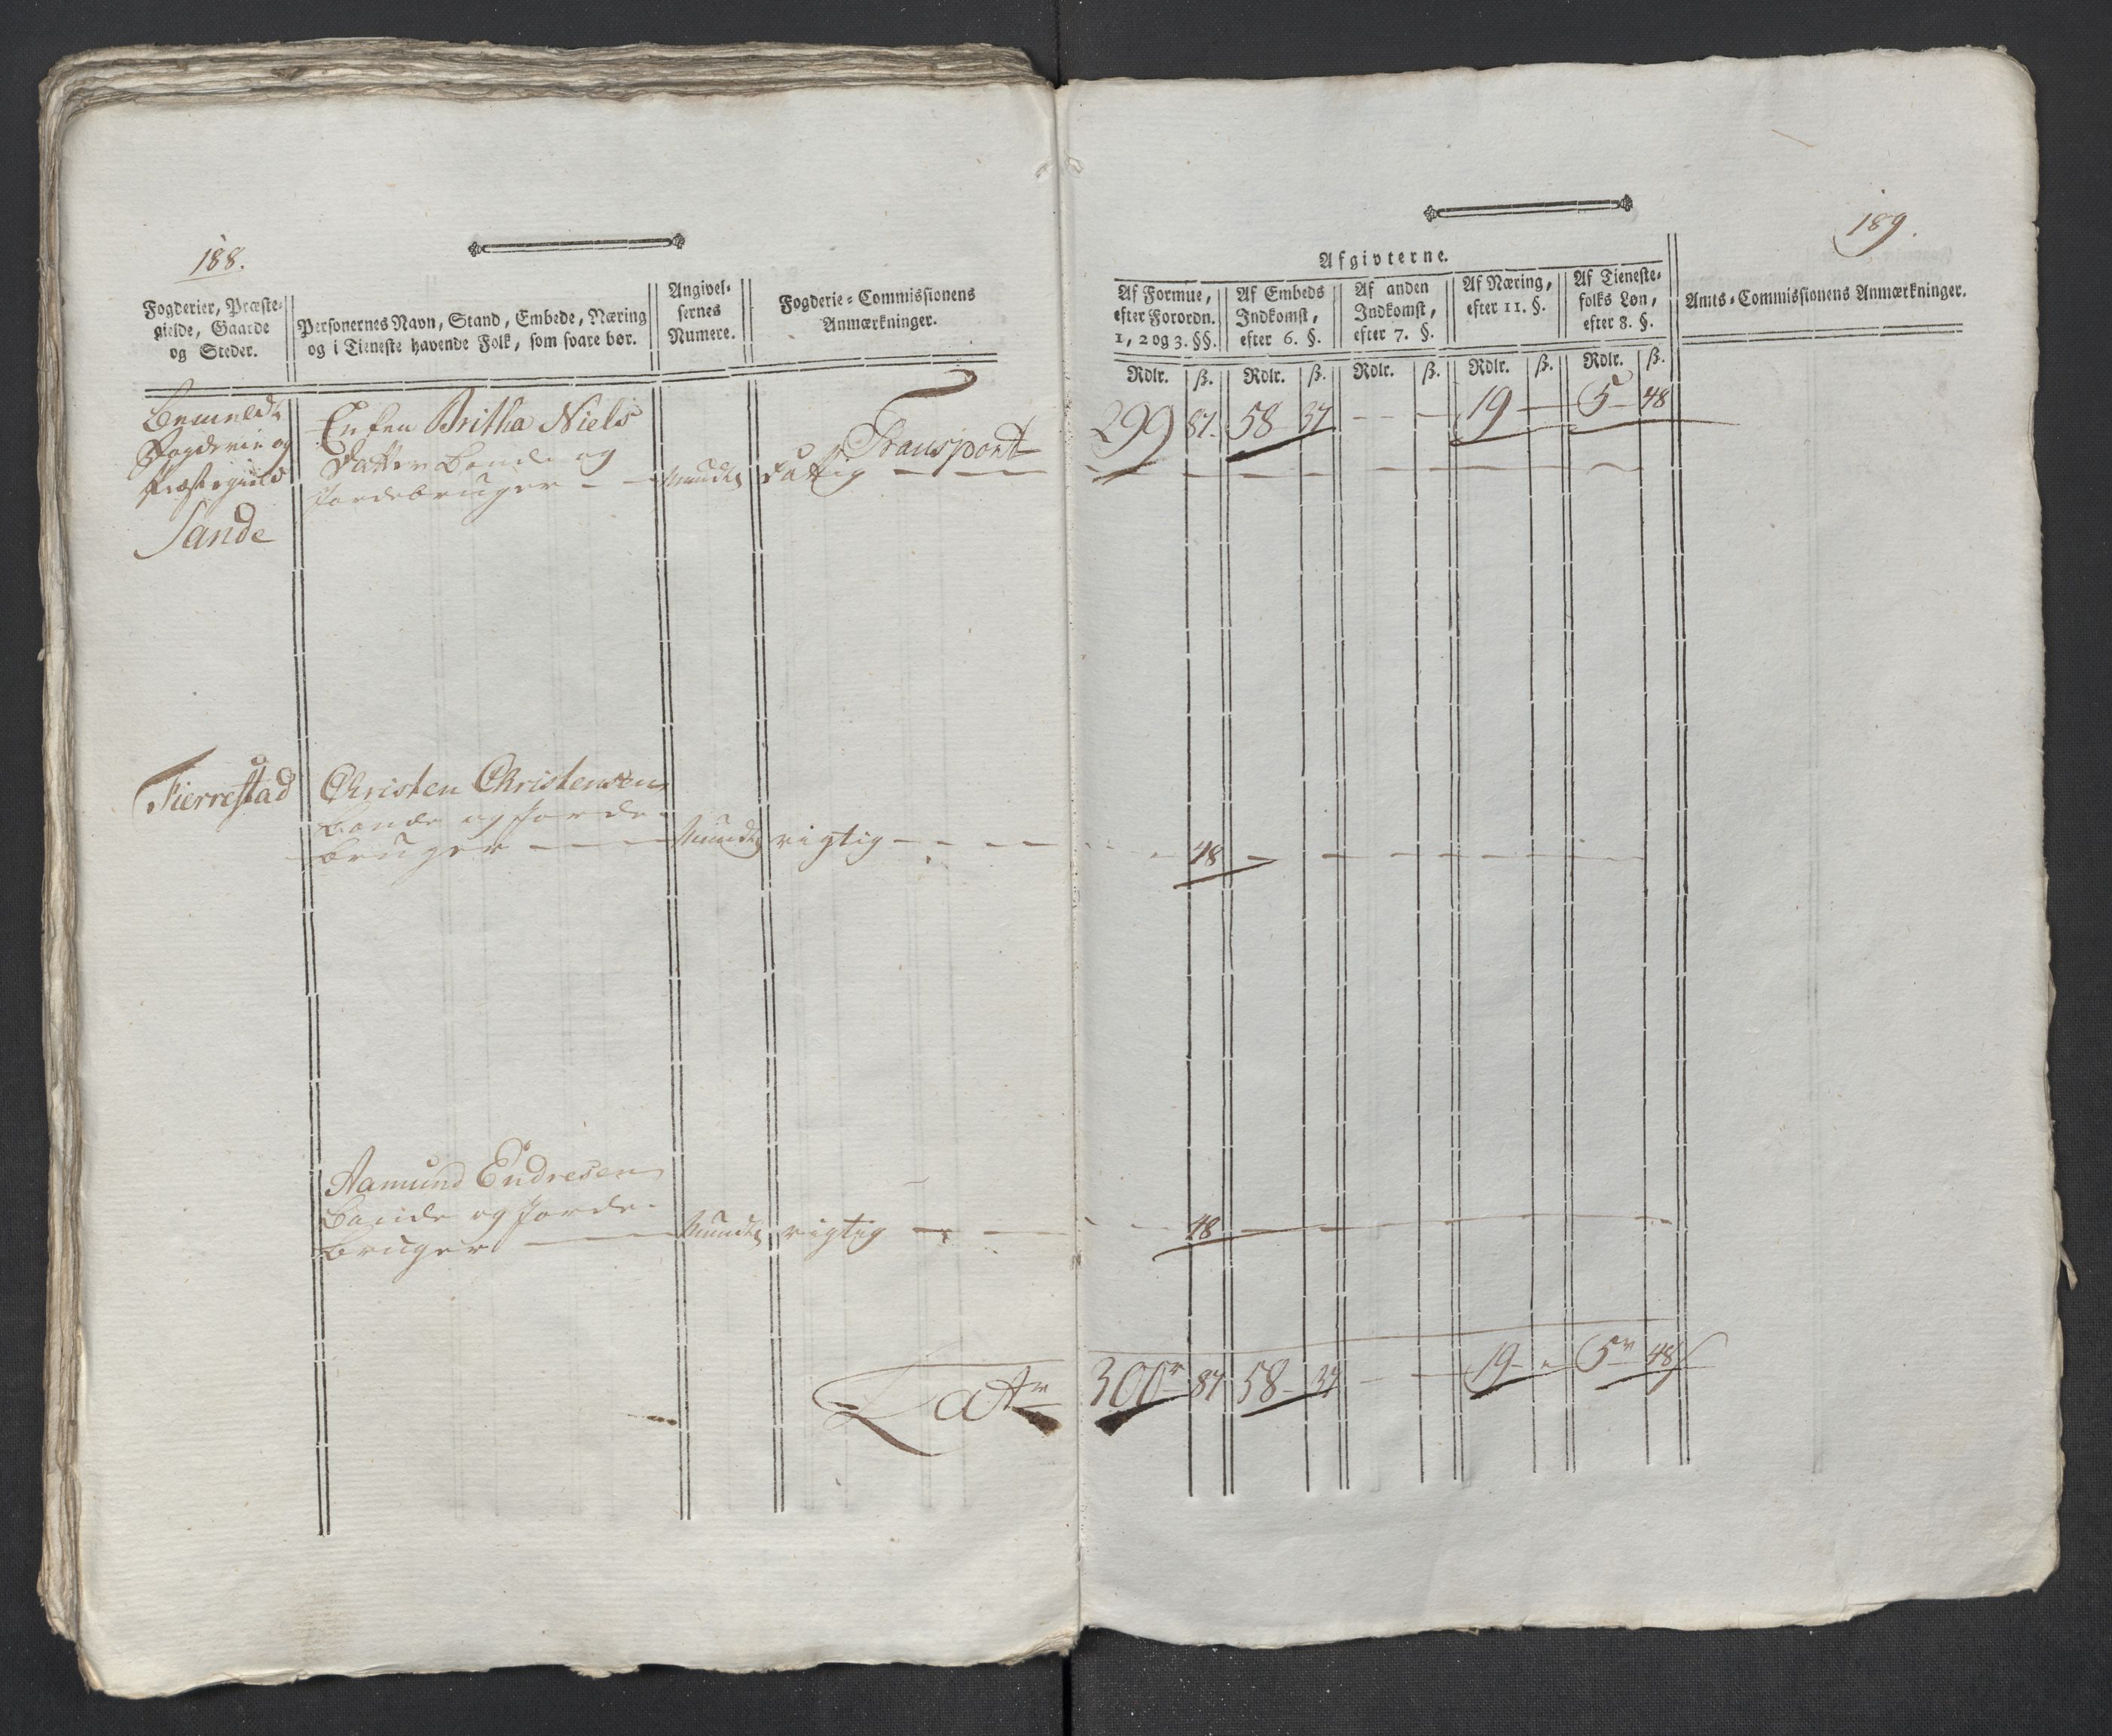 188.
Fogderier, Præste-
gielde, Gaarde
og Steder.
Personernes Navn, Stand, Embede, Næring
og i Tieneste havende Folk, som svare bør.
Angivel-
sernes
Numere.
Fogderie-Commissionens
Anmærkninger.
Bemeldte
Fogderie og
Præstegield
Sande
Enken Britha Niels
Datter Bonde og
Jordebruger - - Mundtl. Fattig - - -
Transport
Fierrestad
Christen Christensen
Bonde og Jorde-
bruger - - - Mundtl. rigtig - - - -
Aamund Endresen
Bonde og Jorde-
bruger - - - Mundtl. rigtig - - -
Latr
189.
Afgivterne.
Af Formue,
efter Forordn.
1, 2 og 3. §§.
Af Embeds
Indkomst,
efter 6. §.
Af anden
Indkomst,
efter 7. §.
Af Næring,
efter 11. §.
Af Tieneste-
folks Løn,
efter 8. §.
Amts-Commissionens Anmærkninger.
Rdlr. ß. Rdlr. ß. Rdlr. ß. Rdlr. ß. Rdlr. ß.
299 87. 58 37 - - 19 - 5 - 48
48
48
300 87 58 - 37 - - 19 - 5 48